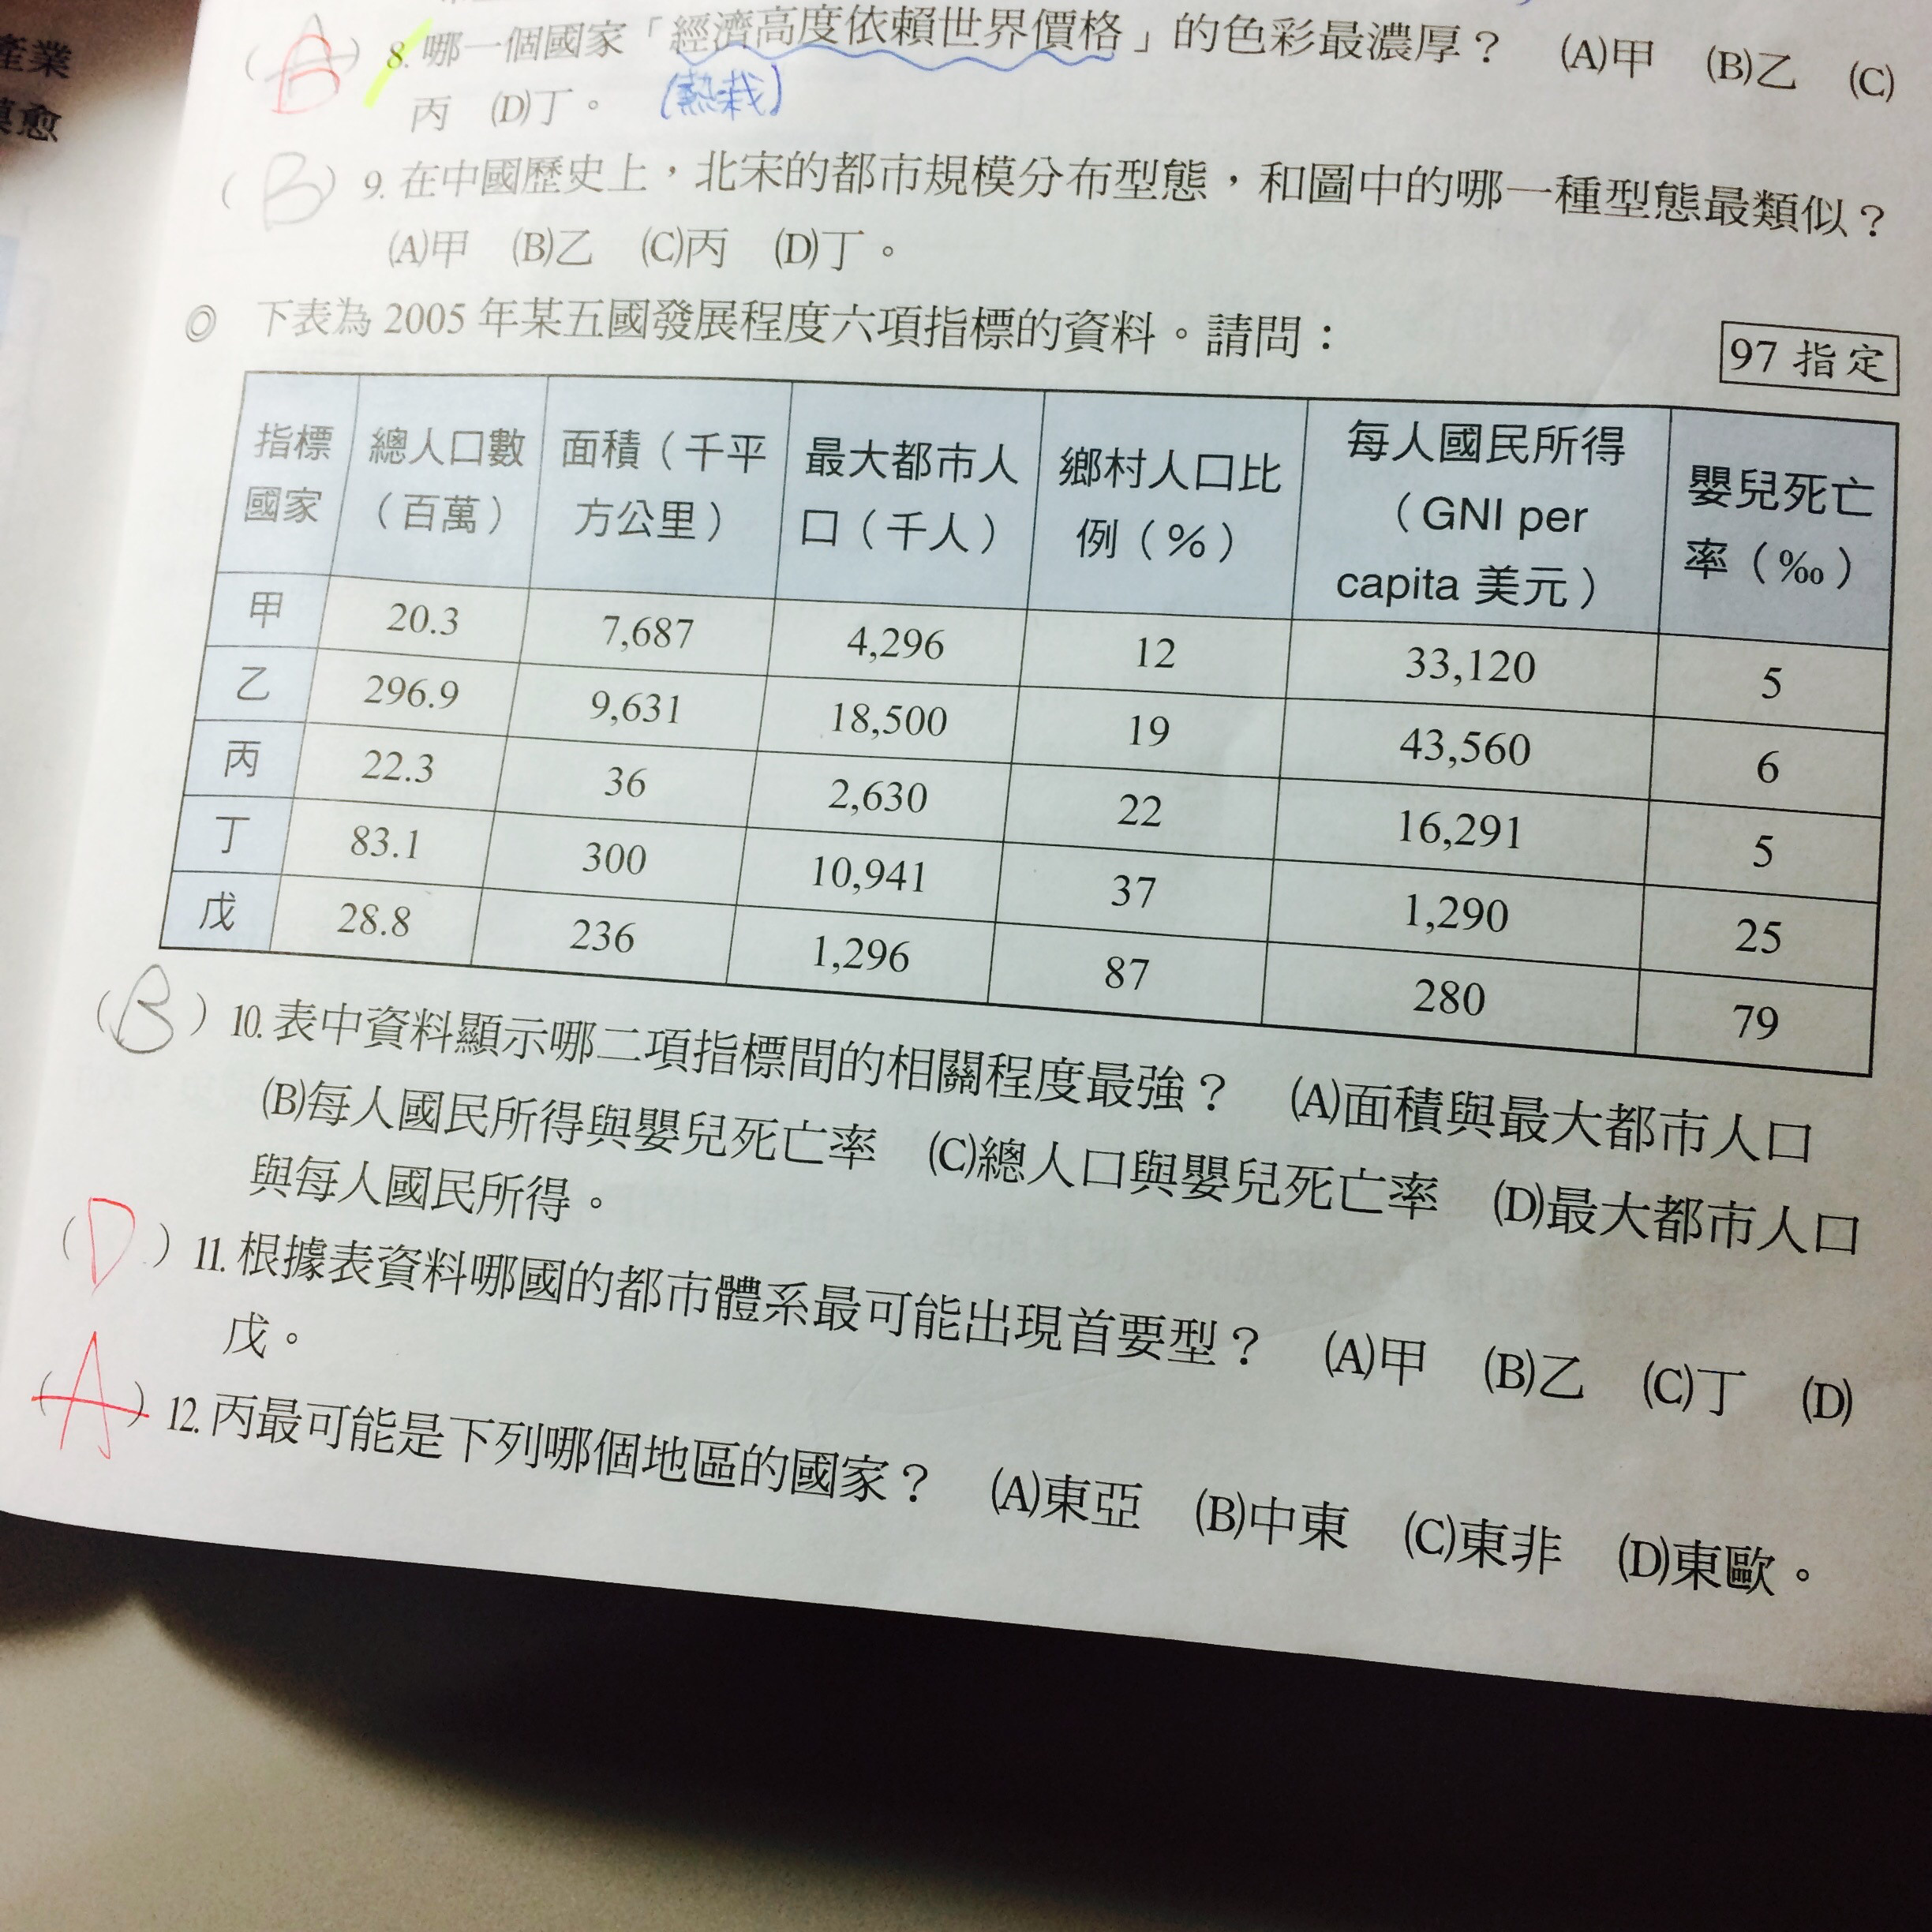 產業
愈
(B) 8. 哪一個國家「經濟高度依賴世界價格」的色彩最濃厚? (A)甲 (B)乙 (C)
丙 (D)丁。 (熱栽)
(B) 9. 在中國歷史上,北宋的都市規模分布型態,和圖中的哪一種型態最類似?
(A)甲 (B)乙 (C)丙 (D)丁。
◎ 下表為 2005 年某五國發展程度六項指標的資料。請問:
97 指定
指標 國家 總人口數(百萬) 面積(千平方公里) 最大都市人口(千人) 鄉村人口比例(%) 每人國民所得(GNI per capita 美元) 嬰兒死亡率(‰)
甲 20.3 7,687 4,296 12 33,120 5
乙 296.9 9,631 18,500 19 43,560 6
丙 22.3 36 2,630 22 16,291 5
丁 83.1 300 10,941 37 1,290 25
戊 28.8 236 1,296 87 280 79
(B) 10. 表中資料顯示哪二項指標間的相關程度最強? (A)面積與最大都市人口
(B)每人國民所得與嬰兒死亡率 (C)總人口與嬰兒死亡率 (D)最大都市人口
與每人國民所得。
(D) 11. 根據表資料哪國的都市體系最可能出現首要型? (A)甲 (B)乙 (C)丁 (D)
戊。
(A) 12. 丙最可能是下列哪個地區的國家? (A)東亞 (B)中東 (C)東非 (D)東歐。